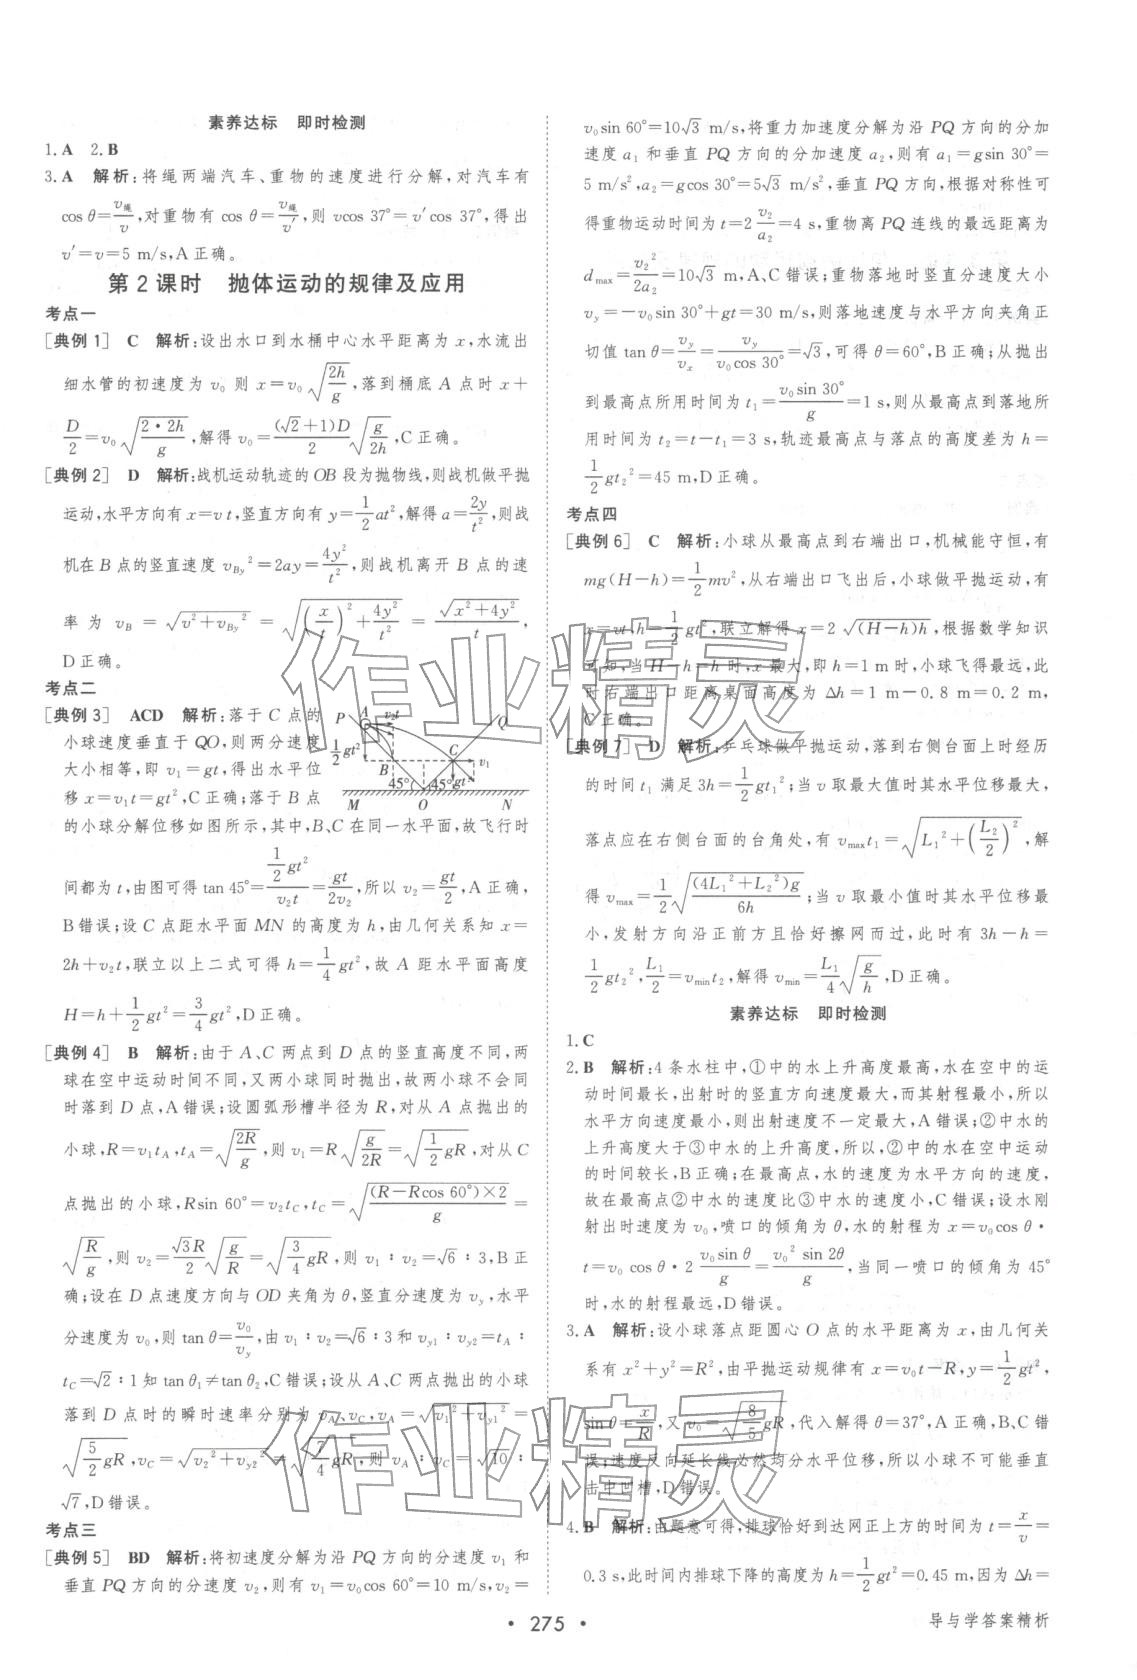 素养达标 即时检测
1. A 2. B
3. A 解析:将绳两端汽车、重物的速度进行分解,对汽车有
cos θ=v绳/v,对重物有 cos θ=v绳/v′,则 vcos 37°=v′cos 37°,得出
v′=v=5 m/s,A正确。
第 2 课时 抛体运动的规律及应用
考点一
[典例 1] C 解析:设出水口到水桶中心水平距离为 x,水流出
细水管的初速度为 v₀ 则 x=v₀√(2h/g),落到桶底 A 点时 x+
D/2=v₀√(2·2h/g),解得 v₀=(√2+1)D/2 √(g/2h),C正确。
[典例 2] D 解析:战机运动轨迹的OB段为抛物线,则战机做平抛
运动,水平方向有 x=vt,竖直方向有 y=1/2 at²,解得 a=2y/t²,则战
机在 B 点的竖直速度 v_By²=2ay=4y²/t²,则战机离开 B 点的速
率为 v_B=√(v²+v_By²)=√((x/t)²+4y²/t²)=√(x²+4y²)/t,
D正确。
考点二
[典例 3] ACD 解析:落于 C 点的
小球速度垂直于QO,则两分速度
大小相等,即 v₁=gt,得出水平位
移 x=v₁t=gt²,C正确;落于 B 点
P A v₂t Q 1/2 gt² B C v₁ gt 45° 45° M O N
的小球分解位移如图所示,其中,B、C在同一水平面,故飞行时
间都为 t,由图可得 tan 45°=(1/2 gt²)/(v₂t)=gt/2v₂,所以 v₂=gt/2,A正确,
B错误;设 C 点距水平面 MN 的高度为 h,由几何关系知 x=
2h+v₂t,联立以上二式可得 h=1/4 gt²,故 A 距水平面高度
H=h+1/2 gt²=3/4 gt²,D正确。
[典例 4] B 解析:由于 A、C 两点到 D 点的竖直高度不同,两
球在空中运动时间不同,又两小球同时抛出,故两小球不能同
时落到 D 点,A错误;设圆弧形槽半径为 R,对从 A 点抛出的
小球,R=v₁t_A,t_A=√(2R/g),则 v₁=R√(g/2R)=√(1/2 gR),对从 C
点抛出的小球,Rsin 60°=v₂t_C,t_C=√((R−Rcos 60°)×2/g)=
√(R/g),则 v₂=√3R/2 √(g/R)=√(3/4 gR),则 v₁∶v₂=√6∶3,B正
确;设在 D 点速度方向与 OD 夹角为 θ,竖直分速度为 v_y,水平
分速度为 v₀,则 tan θ=v₀/v_y,由 v₁∶v₂=√6∶3 和 v_y1∶v_y2=t_A∶
t_C=√2∶1 知 tan θ₁≠tan θ₂,C错误;设从 A、C 两点抛出的小球
落到 D 点时的瞬时速率分别为 v_A、v_C,v_A=√(v₁²+v_y1²)=
√(5/2 gR),v_C=√(v₂²+v_y2²)=√(7/4 gR),则 v_A∶v_C=√10∶
√7,D错误。
考点三
[典例 5] BD 解析:将初速度分解为沿 PQ 方向的分速度 v₁ 和
垂直 PQ 方向的分速度 v₂,则有 v₁=v₀cos 60°=10 m/s,v₂=
v₀sin 60°=10√3 m/s,将重力加速度分解为沿 PQ 方向的分加
速度 a₁ 和垂直 PQ 方向的分加速度 a₂,则有 a₁=gsin 30°=
5 m/s²,a₂=gcos 30°=5√3 m/s²,垂直 PQ 方向,根据对称性可
得重物运动时间为 t=2 v₂/a₂=4 s,重物离 PQ 连线的最远距离为
d_max=v₂²/2a₂=10√3 m,A、C错误;重物落地时竖直分速度大小
v_y=−v₀sin 30°+gt=30 m/s,则落地速度与水平方向夹角正
切值 tan θ=v_y/v_x=v_y/(v₀cos 30°)=√3,可得 θ=60°,B正确;从抛出
到最高点所用时间为 t₁=v₀sin 30°/g=1 s,则从最高点到落地所
用时间为 t₂=t−t₁=3 s,轨迹最高点与落点的高度差为 h=
1/2 gt₂²=45 m,D正确。
考点四
[典例 6] C 解析:小球从最高点到右端出口,机械能守恒,有
mg(H−h)=1/2 mv²,从右端出口飞出后,小球做平抛运动,有
x=vt,h=1/2 gt²,联立解得 x=2√((H−h)h),根据数学知识
可知,当 H−h=h 时,x 最大,即 h=1 m时,小球飞得最远,此
时右端出口距离桌面高度为 Δh=1 m−0.8 m=0.2 m,
C正确。
[典例 7] D 解析:乒乓球做平抛运动,落到右侧台面上时经历
的时间 t₁ 满足 3h=1/2 gt₁²;当 v 取最大值时其水平位移最大,
落点应在右侧台面的台角处,有 v_max t₁=√(L₁²+(L₂/2)²),解
得 v_max=1/2 √((4L₁²+L₂²)g/6h);当 v 取最小值时其水平位移最
小,发射方向沿正前方且恰好擦网而过,此时有 3h−h=
1/2 gt₂²,L₁/2=v_min t₂,解得 v_min=L₁/4 √(g/h),D正确。
素养达标 即时检测
1. C
2. B 解析:4 条水柱中,①中的水上升高度最高,水在空中的运
动时间最长,出射时的竖直方向速度最大,而其射程最小,所以
水平方向速度最小,则出射速度不一定最大,A错误;②中水的
上升高度大于③中水的上升高度,所以,②中的水在空中运动
的时间较长,B正确;在最高点,水的速度为水平方向的速度,
故在最高点②中水的速度比③中水的速度小,C错误;设水刚
射出时速度为 v₀,喷口的倾角为 θ,水的射程为 x=v₀cos θ·
t=v₀ cos θ·2 v₀sin θ/g=v₀² sin 2θ/g,当同一喷口的倾角为 45°
时,水的射程最远,D错误。
3. A 解析:设小球落点距圆心 O 点的水平距离为 x,由几何关
系有 x²+y²=R²,由平抛运动规律有 x=v₀t−R,y=1/2 gt²,
sin θ=x/R,又 v₀=√(8/5 gR),代入解得 θ=37°,A正确,B、C错
误;速度反向延长线必然均分水平位移,所以小球不可能垂直
击中凹槽,D错误。
4. B 解析:由题意可得,排球恰好到达网正上方的时间为 t=x/v=
0.3 s,此时间内排球下降的高度为 h=1/2 gt²=0.45 m,因为 Δh=
作业精灵
作业精灵
· 275 ·
导与学答案精析